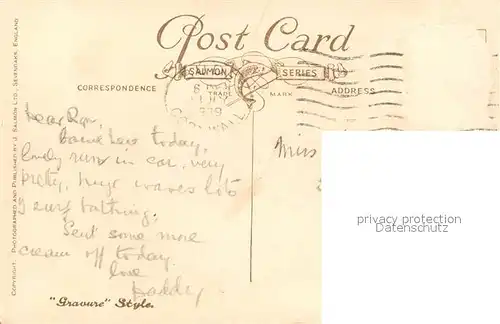 Post Card
SALMON SERIES
TRADE MARK
CORRESPONDENCE
ADDRESS
CORNWALL
Came here today,
lovely run in car, very
pretty, huge waves lots
surf bathing.
Sent some more
cream off today.
love
Daddy
Miss
privacy protection
"Gravure" Style.
COPYRIGHT. PHOTOGRAPHED AND PUBLISHED BY J. SALMON LTD., SEVENOAKS, ENGLAND